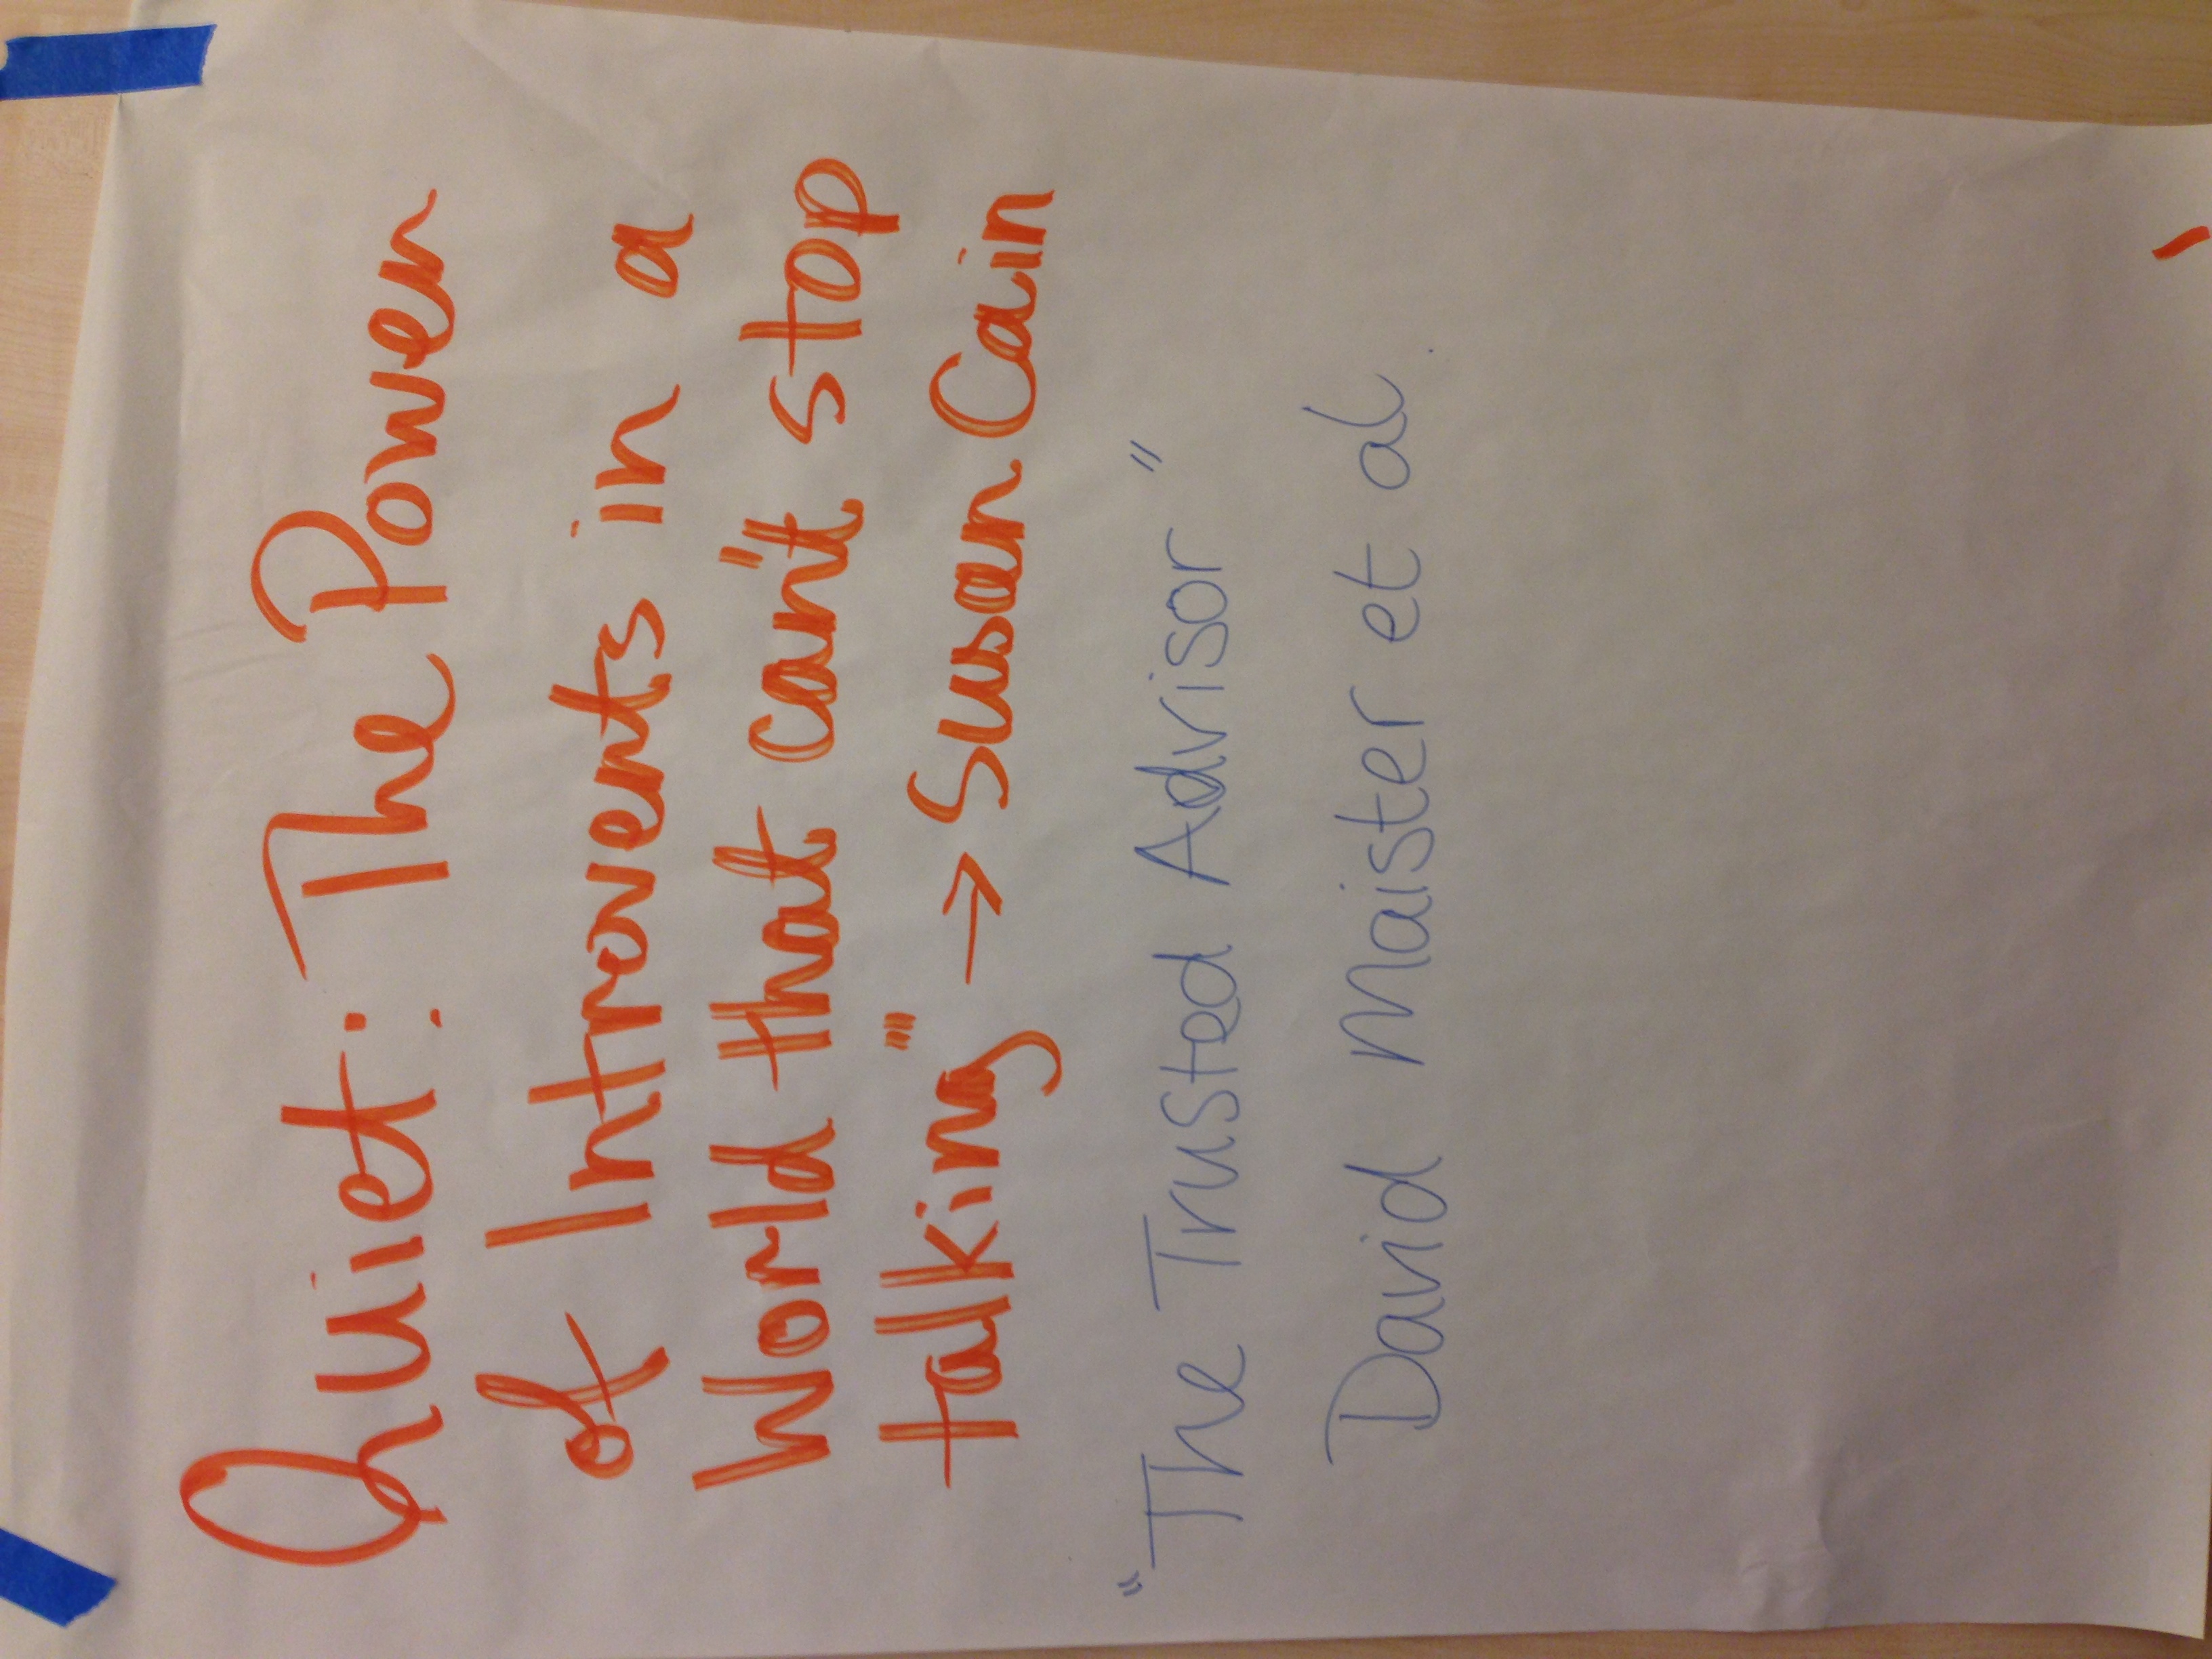 Quiet: The Power
of Introverts in a
World that can't stop
talking" → Susan Cain
"The Trusted Advisor"
David Maister et al.